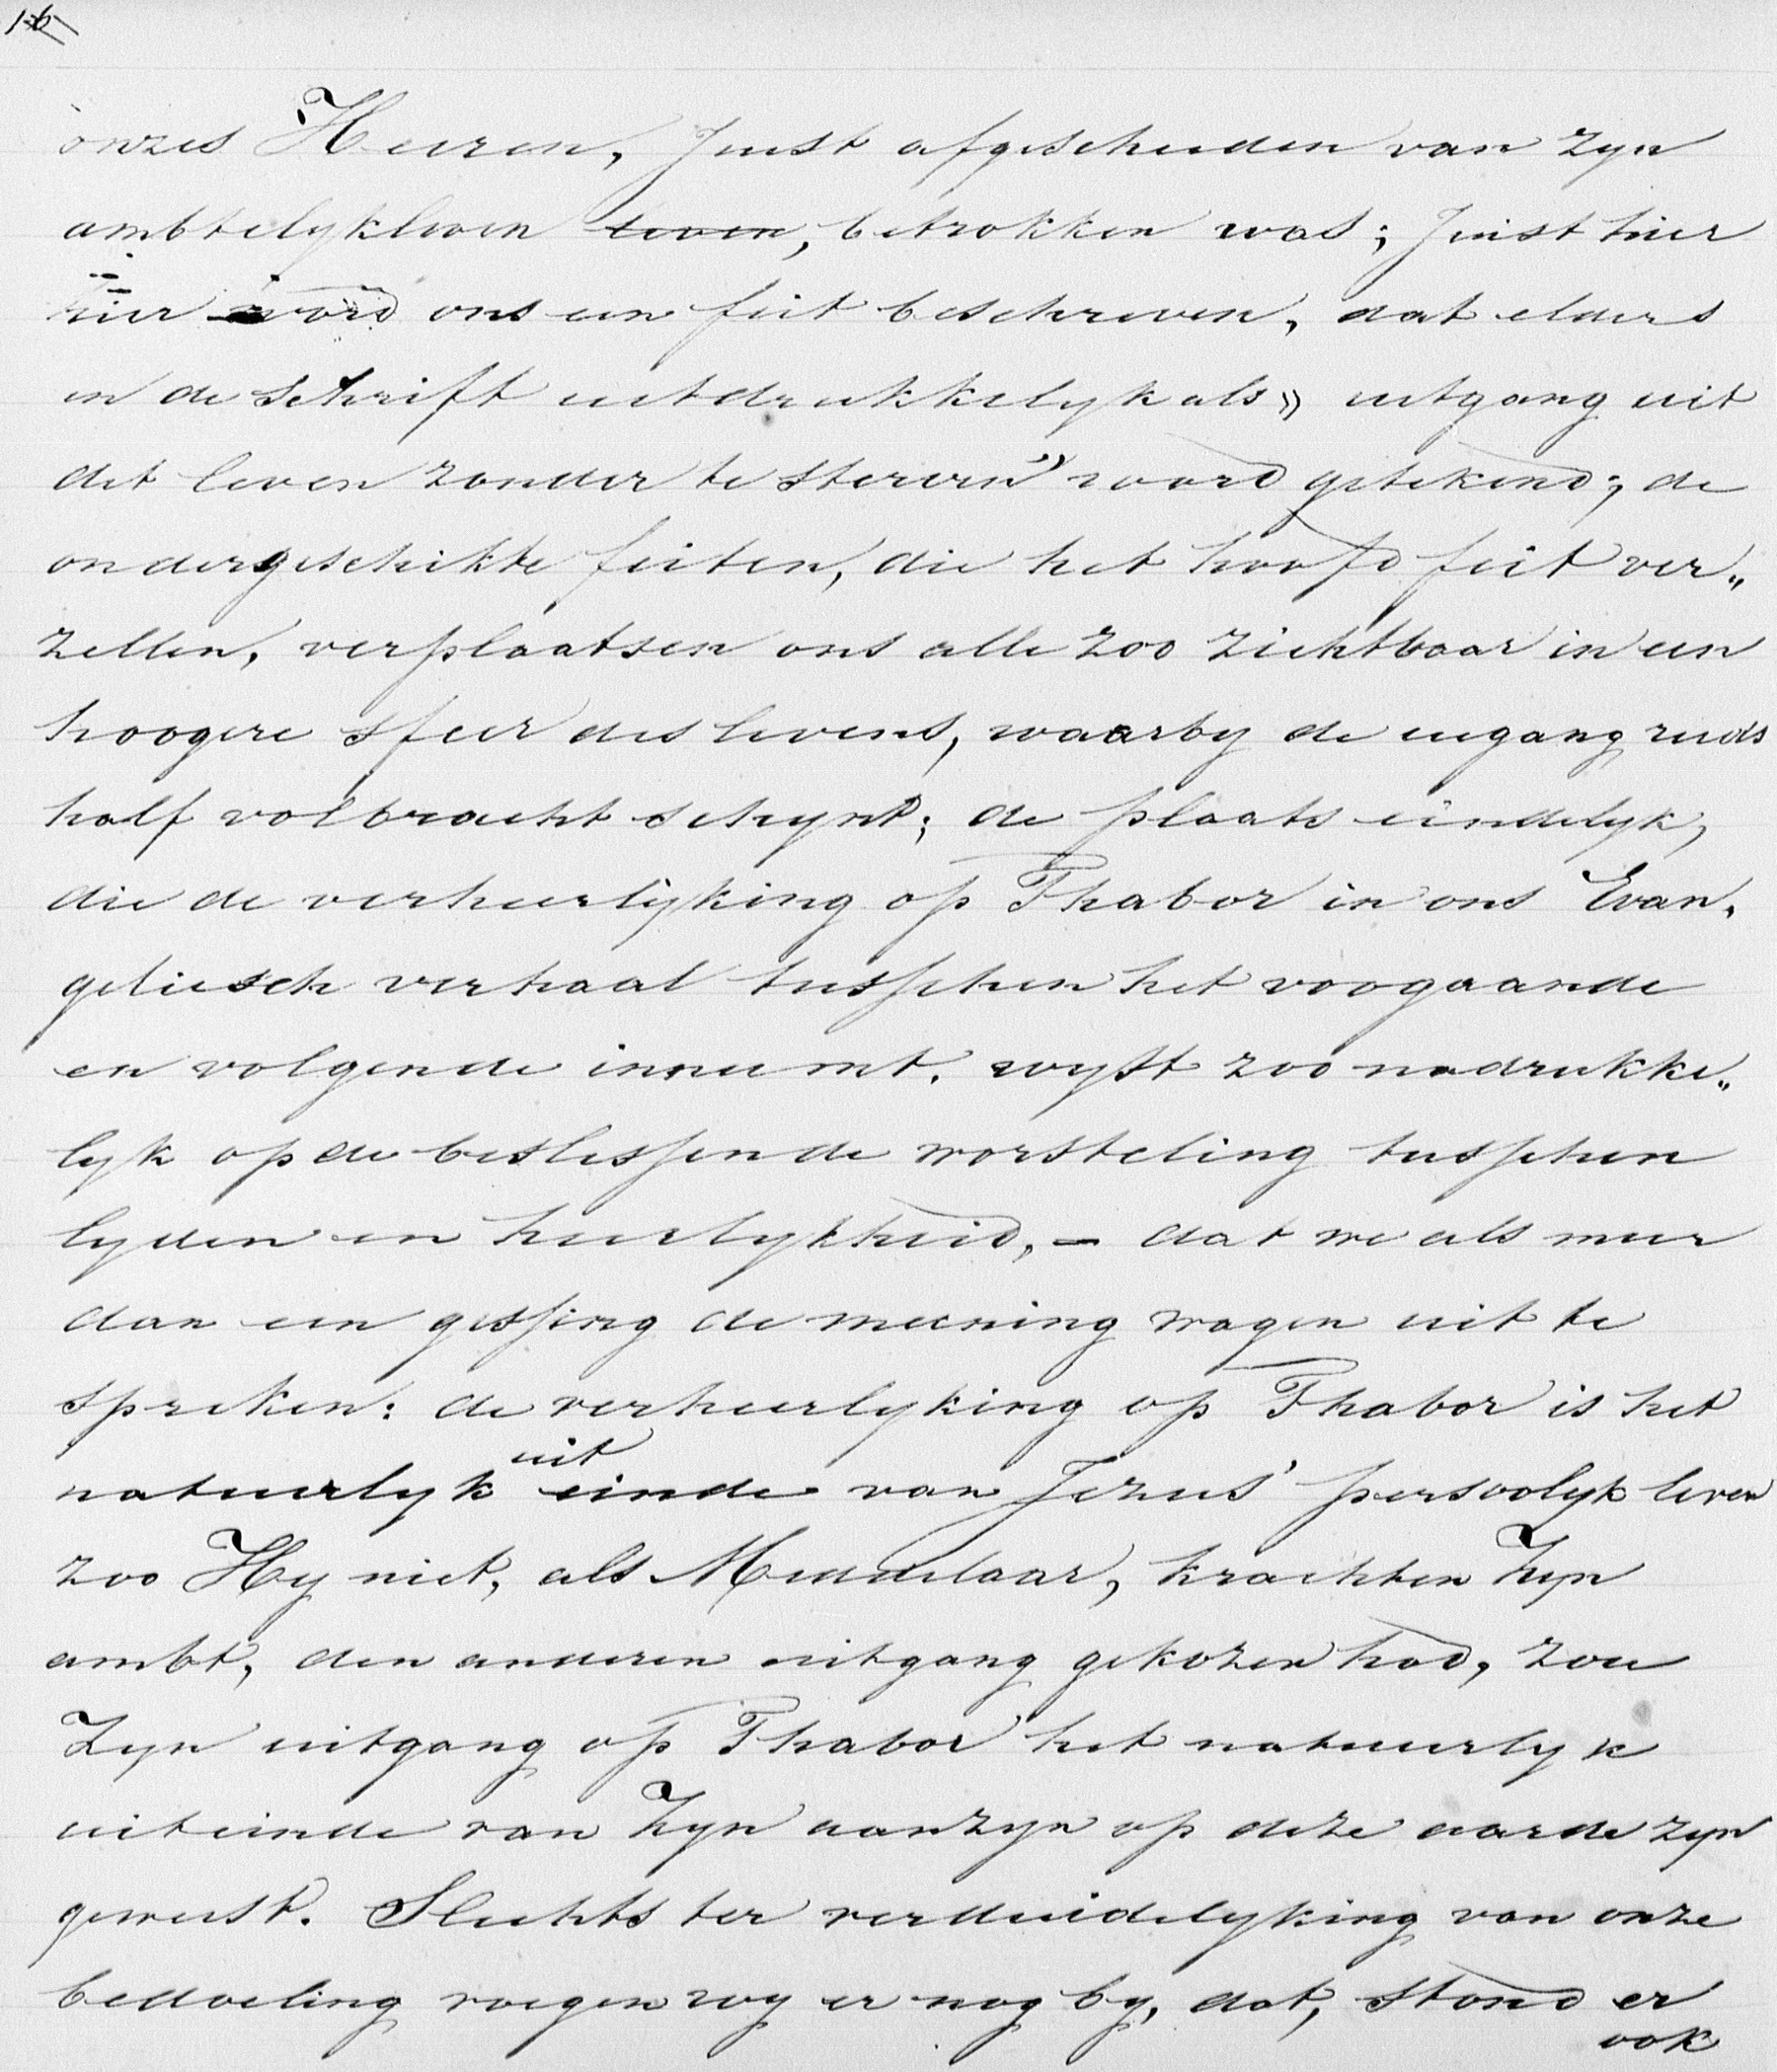 16
onzes Heeren, Juist afgescheiden van zyn
ambtelykleven leven, betrokken was; Juist hier
hier word ons een feit beschreven, dat elders
in de Schrift uitdrukkelyk als „uitgang uit
dit leven zonder te sterven” word getekend; de
ondergeschikte feiten, die het hoofd feit ver„
zellen, verplaatsen ons alle zoo zichtbaar in een
hoogere sfeer des levens, waarby de uigang reeds
half volbracht schynt; de plaats eindelyk,
die de verheerlyking op Thabor in ons Evan„
geliesch verhaal tusschen het voogaande
en volgende inneemt. wyst zoo nadrukke„
lyk op de beslissende worsteling tusschen
lyden en heerlykheid, – dat we als meer
dan een gissing de meening wagen uit te
spreken: de verheerlyking op Thabor is het
natuurlyk uiteinde van Jezus' persoolyk leven
zoo Hy niet, als Middelaar, krachten Zyn
ambt, den anderen uitgang gekozen had, zou
Zyn uitgang op Thabor het natuurlyk
uiteinde van Zyn aanzyn op deze aarde zyn
geweest. Slechts ter verduidelyking van onze
bedoeling voegen wy er nog by, dat, stond er
ook